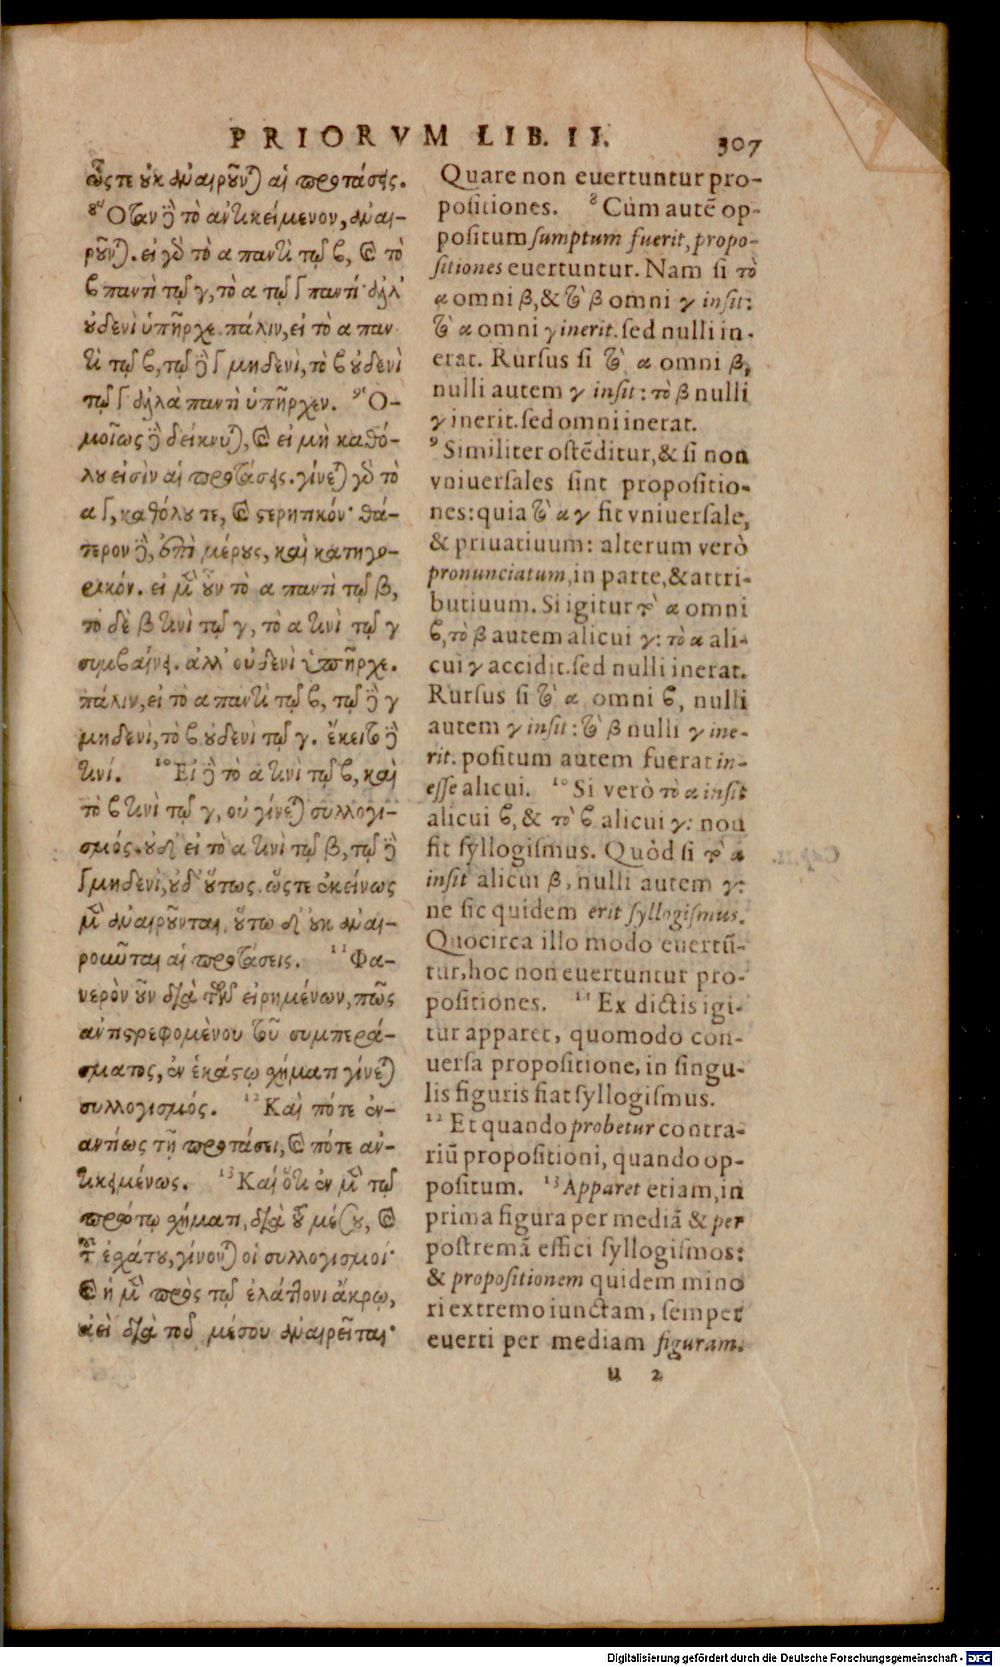 PRIORVM LIB. II.
307
ὥςτε οὐκ ἀναιροῦνται αἱ προτάσεις.
⁸ Ὅταν δὲ τὸ ἀντικείμενον, ἀναι-
ροῦνται. εἰ γὰρ τὸ α παντὶ τῷ ϐ, καὶ τὸ
ϐ παντὶ τῷ γ, τὸ α τῷ γ παντί· ἀλλ'
οὐδενὶ ὑπῆρχε. πάλιν, εἰ τὸ α παν-
τὶ τῷ ϐ, τῷ δὲ γ μηδενὶ, τὸ ϐ οὐδενὶ
τῷ γ ἀλλὰ παντὶ ὑπῆρχεν. ⁹ Ὁ-
μοίως δὲ δείκνυται, καὶ εἰ μὴ καθό-
λου εἰσὶν αἱ προτάσεις. γίνεται γὰρ τὸ
α γ, καθόλου τε, καὶ ςερητικόν· θά-
τερον δὲ, ἐπὶ μέρους, καὶ κατηγο-
ρικόν. εἰ μὲν οὖν τὸ α παντὶ τῷ β,
τὸ δὲ β τινὶ τῷ γ, τὸ α τινὶ τῷ γ
συμϐαίνει. ἀλλ' οὐδενὶ ὑπῆρχε.
πάλιν, εἰ τὸ α παντὶ τῷ ϐ, τῷ δὲ γ
μηδενὶ, τὸ ϐ οὐδενὶ τῷ γ. ἔκειτο δὲ
τινί. ¹⁰ Εἰ δὲ τὸ α τινὶ τῷ ϐ, καὶ
τὸ ϐ τινὶ τῷ γ, οὐ γίνεται συλλογι-
σμός. οὐδ' εἰ τὸ α τινὶ τῷ β, τῷ δὲ
γ μηδενὶ, οὐδ' οὕτως. ὥςτε ἐκείνως
μὲν ἀναιροῦνται, οὕτω δ' οὐκ ἀναι-
ροῦνται αἱ προτάσεις. ¹¹ Φα-
νερὸν οὖν διὰ τῶν εἰρημένων, πῶς
ἀντιςρεφομένου τοῦ συμπερά-
σματος, ἐν ἑκάςῳ χήματι γίνεται
συλλογισμός. ¹² Καὶ πότε ἐν-
αντίως τῇ προτάσει, καὶ πότε ἀν-
τικειμένως. ¹³ Καὶ ὅτι ἐν μὲν τῷ
πρώτῳ χήματι, διὰ τοῦ μέσου, καὶ
τοῦ ἐχάτου, γίνονται οἱ συλλογισμοί·
καὶ ἡ μὲν πρὸς τῷ ἐλάττονι ἄκρῳ,
ἀεὶ διὰ τοῦ μέσου ἀναιρεῖται·
Quare non euertuntur pro-
positiones. ⁸ Cùm autē op-
positum sumptum fuerit, propo-
sitiones euertuntur. Nam si τὸ
α omni β, & τὸ β omni γ insit:
τὸ α omni γ inerit. sed nulli in-
erat. Rursus si τὸ α omni β,
nulli autem γ insit: τὸ β nulli
γ inerit. sed omni inerat.
⁹ Similiter ostēditur, & si non
vniuersales sint propositio-
nes: quia τὸ α γ fit vniuersale,
& priuatiuum: alterum verò
pronunciatum, in parte, & attri-
butiuum. Si igitur τὸ α omni
ϐ, τὸ β autem alicui γ: τὸ α ali-
cui γ accidit. sed nulli inerat.
Rursus si τὸ α omni ϐ, nulli
autem γ insit: τὸ β nulli γ ine-
rit. positum autem fuerat in-
esse alicui. ¹⁰ Si verò τὸ α insit
alicui ϐ, & τὸ ϐ alicui γ: non
fit syllogismus. Quòd si τὸ α
insit alicui β, nulli autem γ:
ne sic quidem erit syllogismus.
Quocirca illo modo euertū-
tur, hoc non euertuntur pro-
positiones. ¹¹ Ex dictis igi-
tur apparet, quomodo con-
uersa propositione, in singu-
lis figuris fiat syllogismus.
¹² Et quando probetur contra-
riū propositioni, quando op-
positum. ¹³ Apparet etiam, in
prima figura per mediā & per
postremā effici syllogismos:
& propositionem quidem mino
ri extremo iunctam, semper
euerti per mediam figuram.
u 2
Digitalisierung gefördert durch die Deutsche Forschungsgemeinschaft - DFG